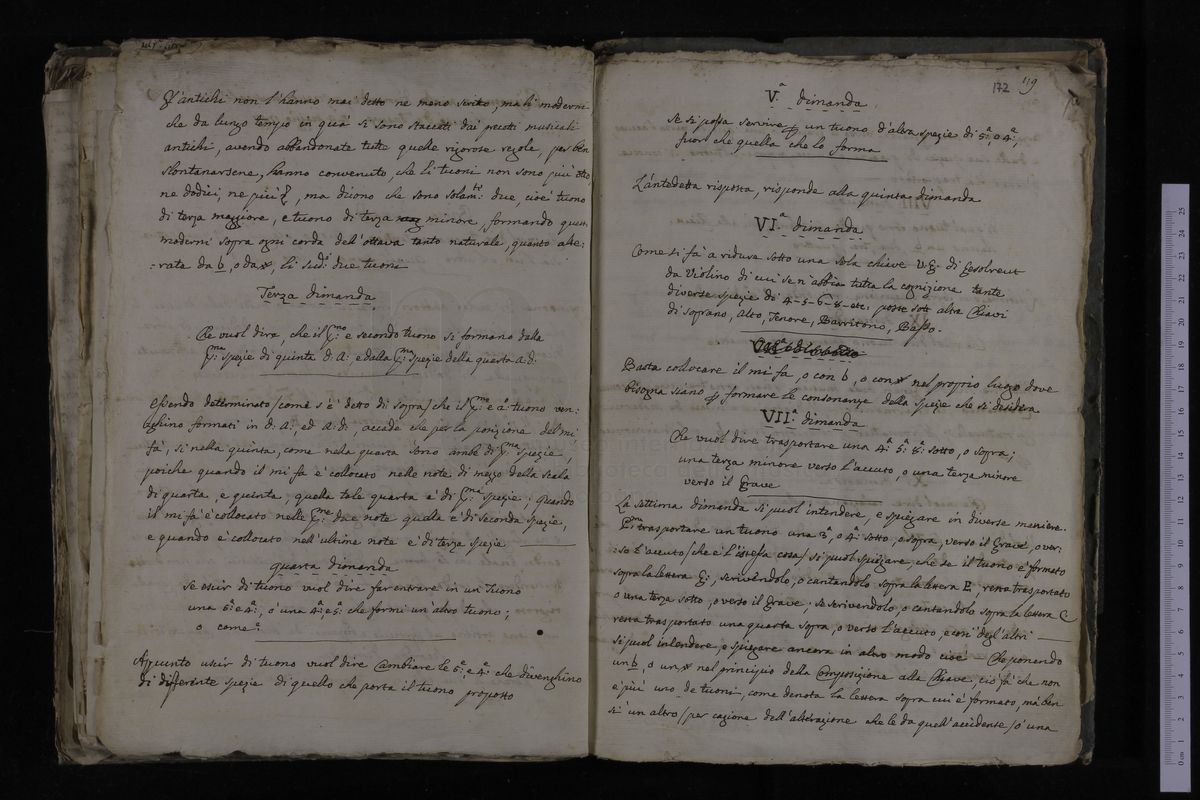 Gl'antichi non l'hanno mai detto ne meno scritto, ma li moderni
che da lungo tempo in quà si sono staccati dai precetti musicali
antichi, avendo abbandonate tutte quelle rigorose regole, per ben
slontanarsene, hanno convenuto, che li tuoni non sono più otto,
ne dodici, ne più, ma dicono che sono solam.te due, cioè tuono
di terza maggiore, e tuono di terza minore, formando questi
moderni sopra ogni corda dell'ottava tanto naturale, quanto alte:
:rata da b, o da x, li sud.i due tuoni
Terza dimanda
Che vuol dire, che il P:mo e secondo tuono si formano dalla
P:ma spezie di quinta d: A: e dalla P:ma spezie della quarta A. d.
Essendo determinato (come s'è detto di sopra) che il P:mo e 2.o tuono ven:
:ghino formati in d: A:, ed A. d:, accade che per la posizione del mi
fà, si nella quinta, come nella quarta sono ambe di P:ma spezie,
poiche quando il mi fa è collocato nelle note di mezzo della scala
di quarta, e quinta, quella tale quarta è di P:ma spezie; quando
il mi fà è collocato nelle P:me due note quella è di seconda spezie,
e quando è collocato nell'ultime note è di terza spezie
quarta dimanda
Se escir di tuono vuol dire far entrare in un Tuono
una 5:a e 4:a, o una 4:a e 5:a che formi un altro tuono;
o come:
Appunto uscir di tuono vuol dire Cambiare le 5:e e 4:e che divenghino
di differente spezie di quello che porta il tuono proposto
172 119
V.a dimanda
Se si possa servire p un tuono d'altra spezie di 5:a o 4:a,
fuor che quella che lo forma
L'antedetta risposta, risponde alla quinta dimanda
VI.a dimanda
Come si fà a ridure sotto una sola chiave V.G: di Gesolreut
da Violino di cui se n'abbia tutta la cognizione tante
diverse spezie di 4-5-6-8-etc: poste sott altre Chiavi
di Soprano, Alto, Tenore, Barritono, Basso.
Basta collocare il mi fa, o con b, o con x nel proprio luogo dove
bisogna siano p formare le consonanze della spezie che si desidera
VII.a dimanda
Che vuol dire trasportare una 4:a 5:a 8:a sotto, o sopra;
una terza minore verso l'accuto, o una terza minore
verso il Grave
La settima dimanda si puol intendere, e spiegare in diverse maniere
P:ma trasportare un tuono una 3.a, o 4.a sotto, o sopra, verso il Grave, o ver:
:so l'accuto (che è l'istessa cosa) si puol spiegare, che se il tuono è formato
sopra la lettera G:, scrivendolo, o cantandolo sopra la lettera E, resta trasportato
o una terza sotto, o verso il Grave; se scrivendolo, o cantandolo sopra la lettera C
resta trasportato una quarta sopra, o verso l'accuto, e così degl'altri
Si puol intendere, e spiegare ancora in altro modo cioè - Che ponendo
un b, o un x nel principio della Composizione alla Chiave, ciò fà che non
è più uno de tuoni, come denota la lettera sopra cui è formato, mà ben
si un altro (per cagione dell'alterazione che le da quell'accidente) o una